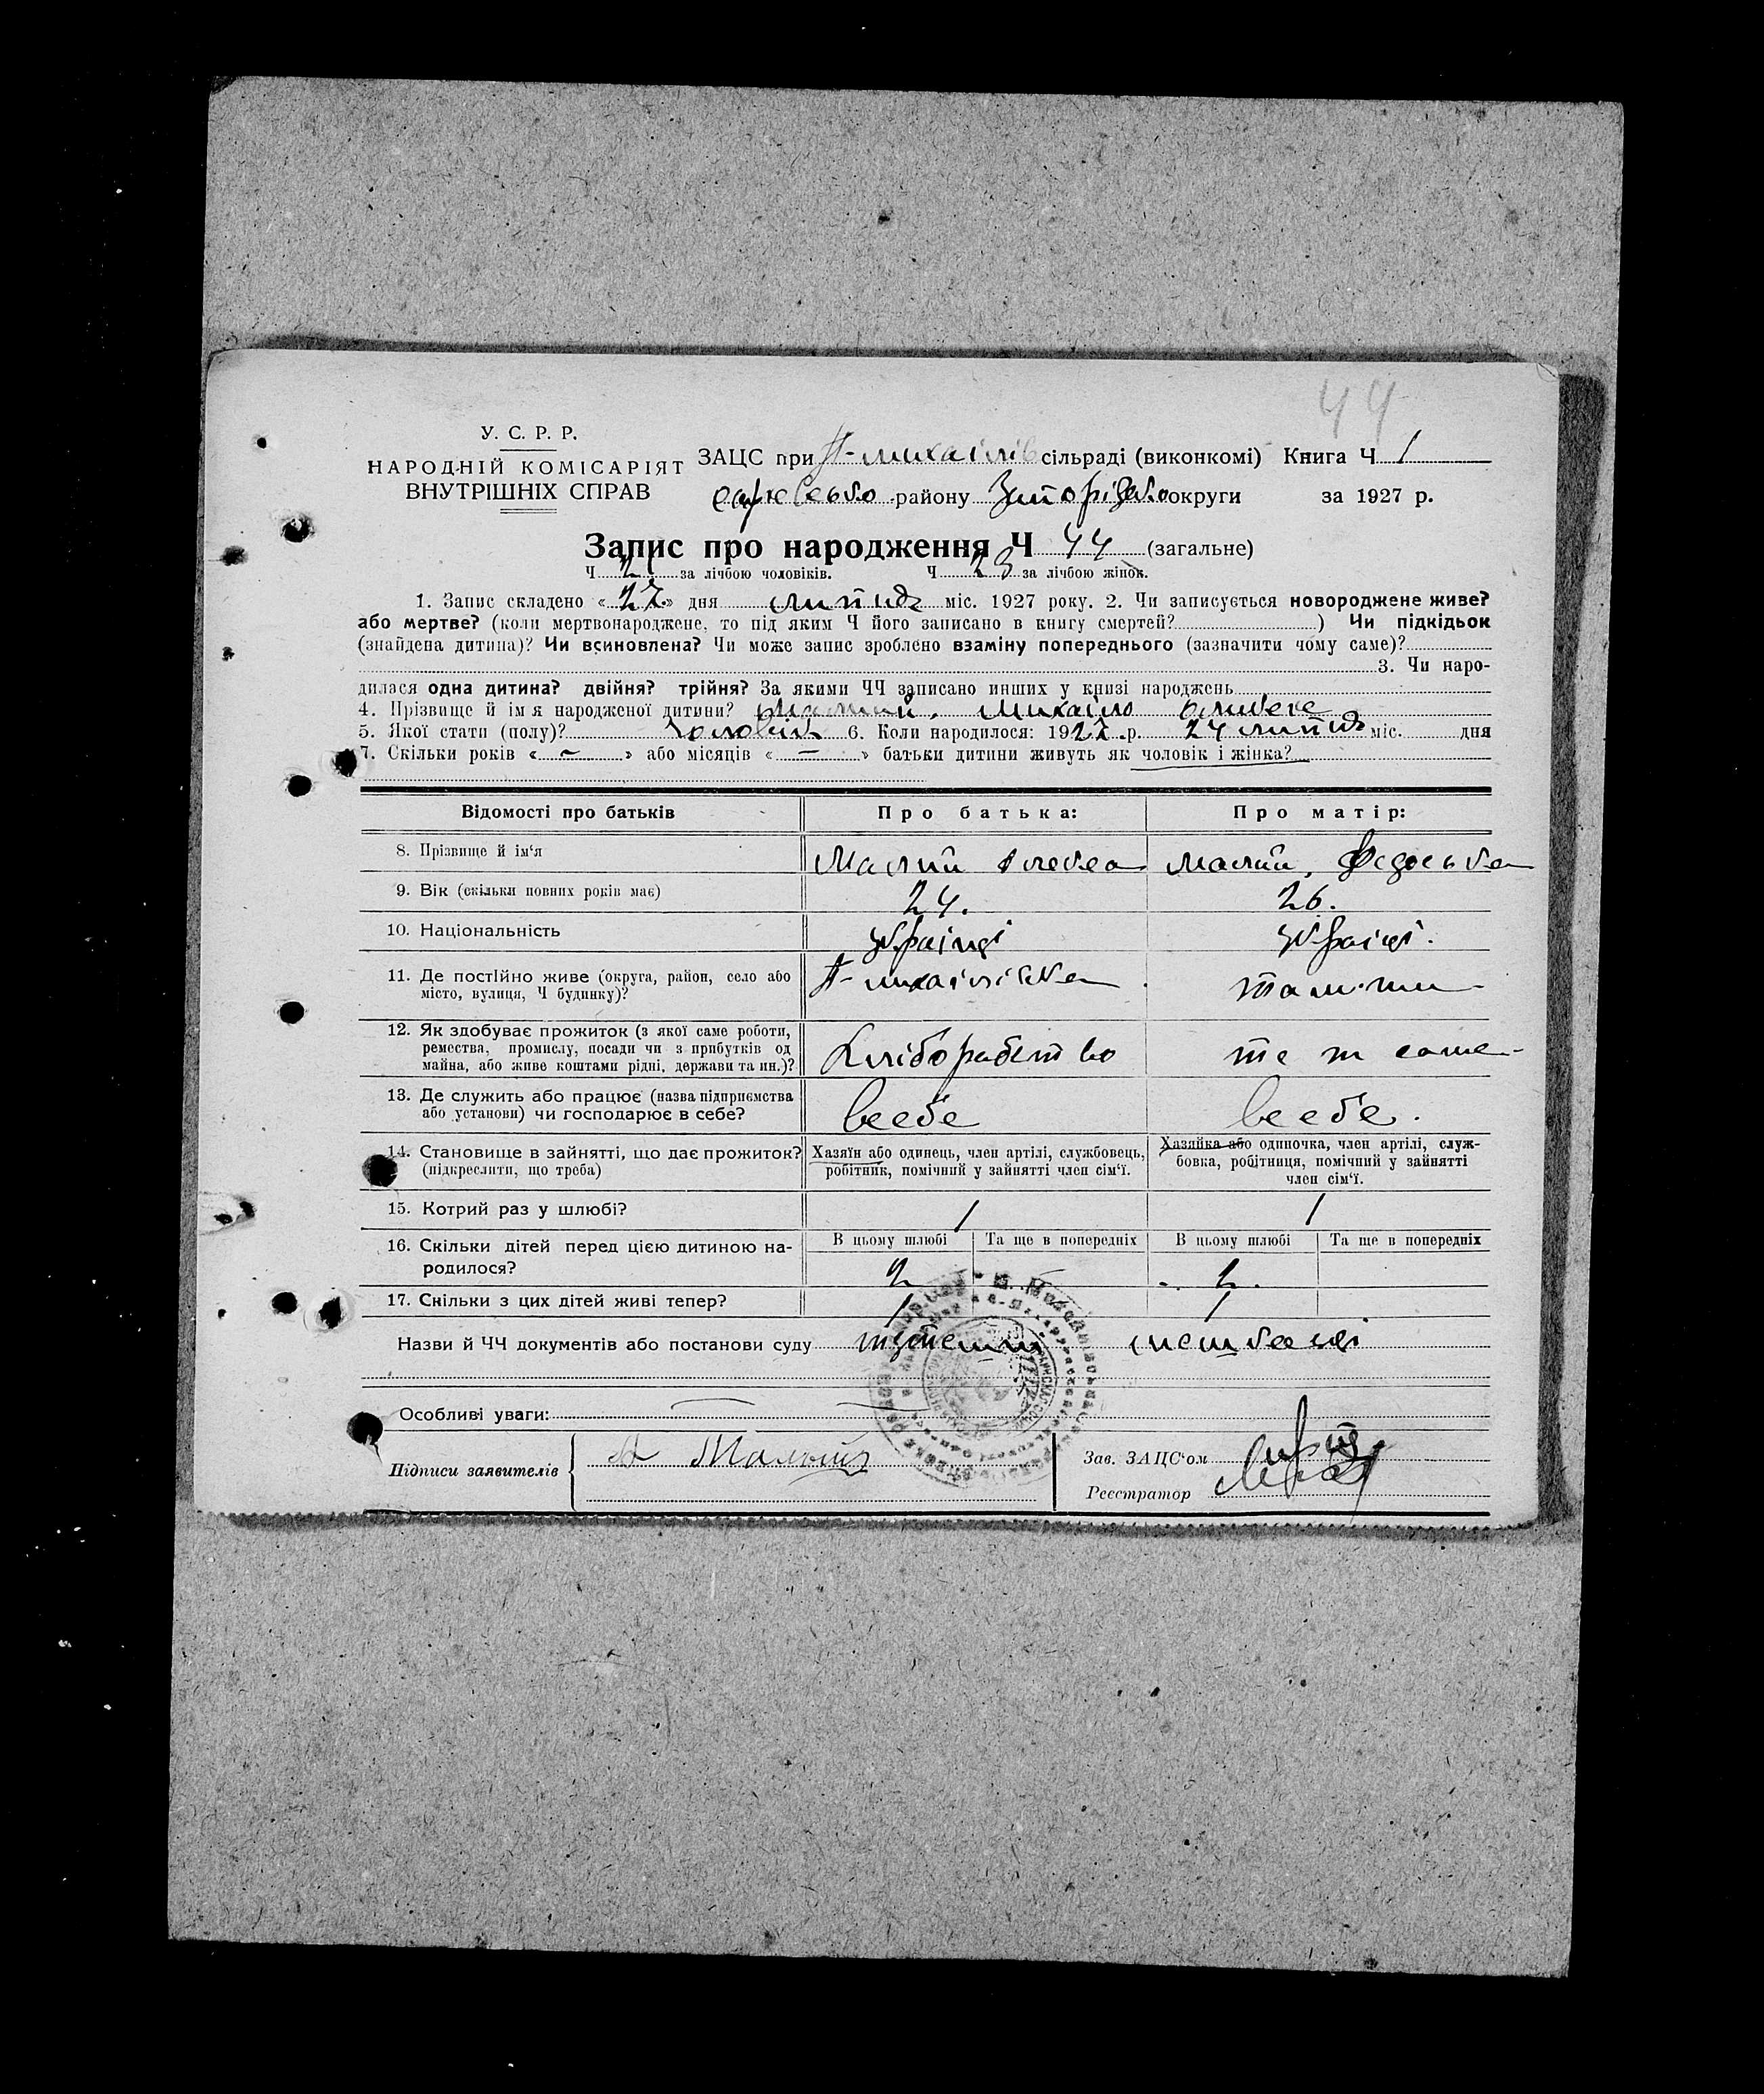 44
У. С. Р. Р.
НАРОДНІЙ КОМІСАРІЯТ
ВНУТРІШНІХ СПРАВ
ЗАЦС при сільраді (виконкомі) Книга Ч 1
району округи за 1927 р.
Запис про народження Ч 44 (загальне)
Ч 21 за лічбою чоловіків. Ч 23 за лічбою жінок.
1. Запис складено «27» дня липця міс. 1927 року. 2. Чи записується новороджене живе?
або мертве? (коли мертвонароджене, то під яким Ч його записано в книгу смертей?) Чи підкідьок
(знайдена дитина)? Чи всиновлена? Чи може запис зроблено взаміну попереднього (зазначити чому саме)?
3. Чи наро-
дилася одна дитина? двійня? трійня? За якими ЧЧ записано инших у книзі народжень
4. Прізвище й ім'я народженої дитини? Малий, Михаіло
5. Якої стати (полу)? 6. Коли народилося: 1927 р. 24 липця міс. дня
7. Скільки років « – » або місяців « – » батьки дитини живуть як чоловік і жінка?
Відомості про батьків Про батька: Про матір:
8. Прізвище й ім'я Малий Малий,
9. Вік (скільки повних років має) 24. 26.
10. Національність Украінці Украінці.
11. Де постійно живе (округа, район, село або
місто, вулиця, Ч будинку)?
12. Як здобуває прожиток (з якої саме роботи,
ремества, промислу, посади чи з прибутків од
майна, або живе коштами рідні, держави та ин.)? те ж саме
13. Де служить або працює (назва підприємства
або установи) чи господарює в себе? в себе в себе.
14. Становище в зайнятті, що дає прожиток?
(підкреслити, що треба)
Хазяїн або одинець, член артілі, службовець,
робітник, помічний у зайнятті член сім'ї.
Хазяйка або одиночка, член артілі, служ-
бовка, робітниця, помічний у зайнятті
член сім'ї.
15. Котрий раз у шлюбі? 1 1
16. Скільки дітей перед цією дитиною на-
родилося?
В цьому шлюбі Та ще в попередніх В цьому шлюбі Та ще в попередніх
2 2.
17. Скільки з цих дітей живі тепер? 1 1
Назви й ЧЧ документів або постанови суду
Особливі уваги:
Підписи заявителів Малый
Зав. ЗАЦС'ом
Реєстратор